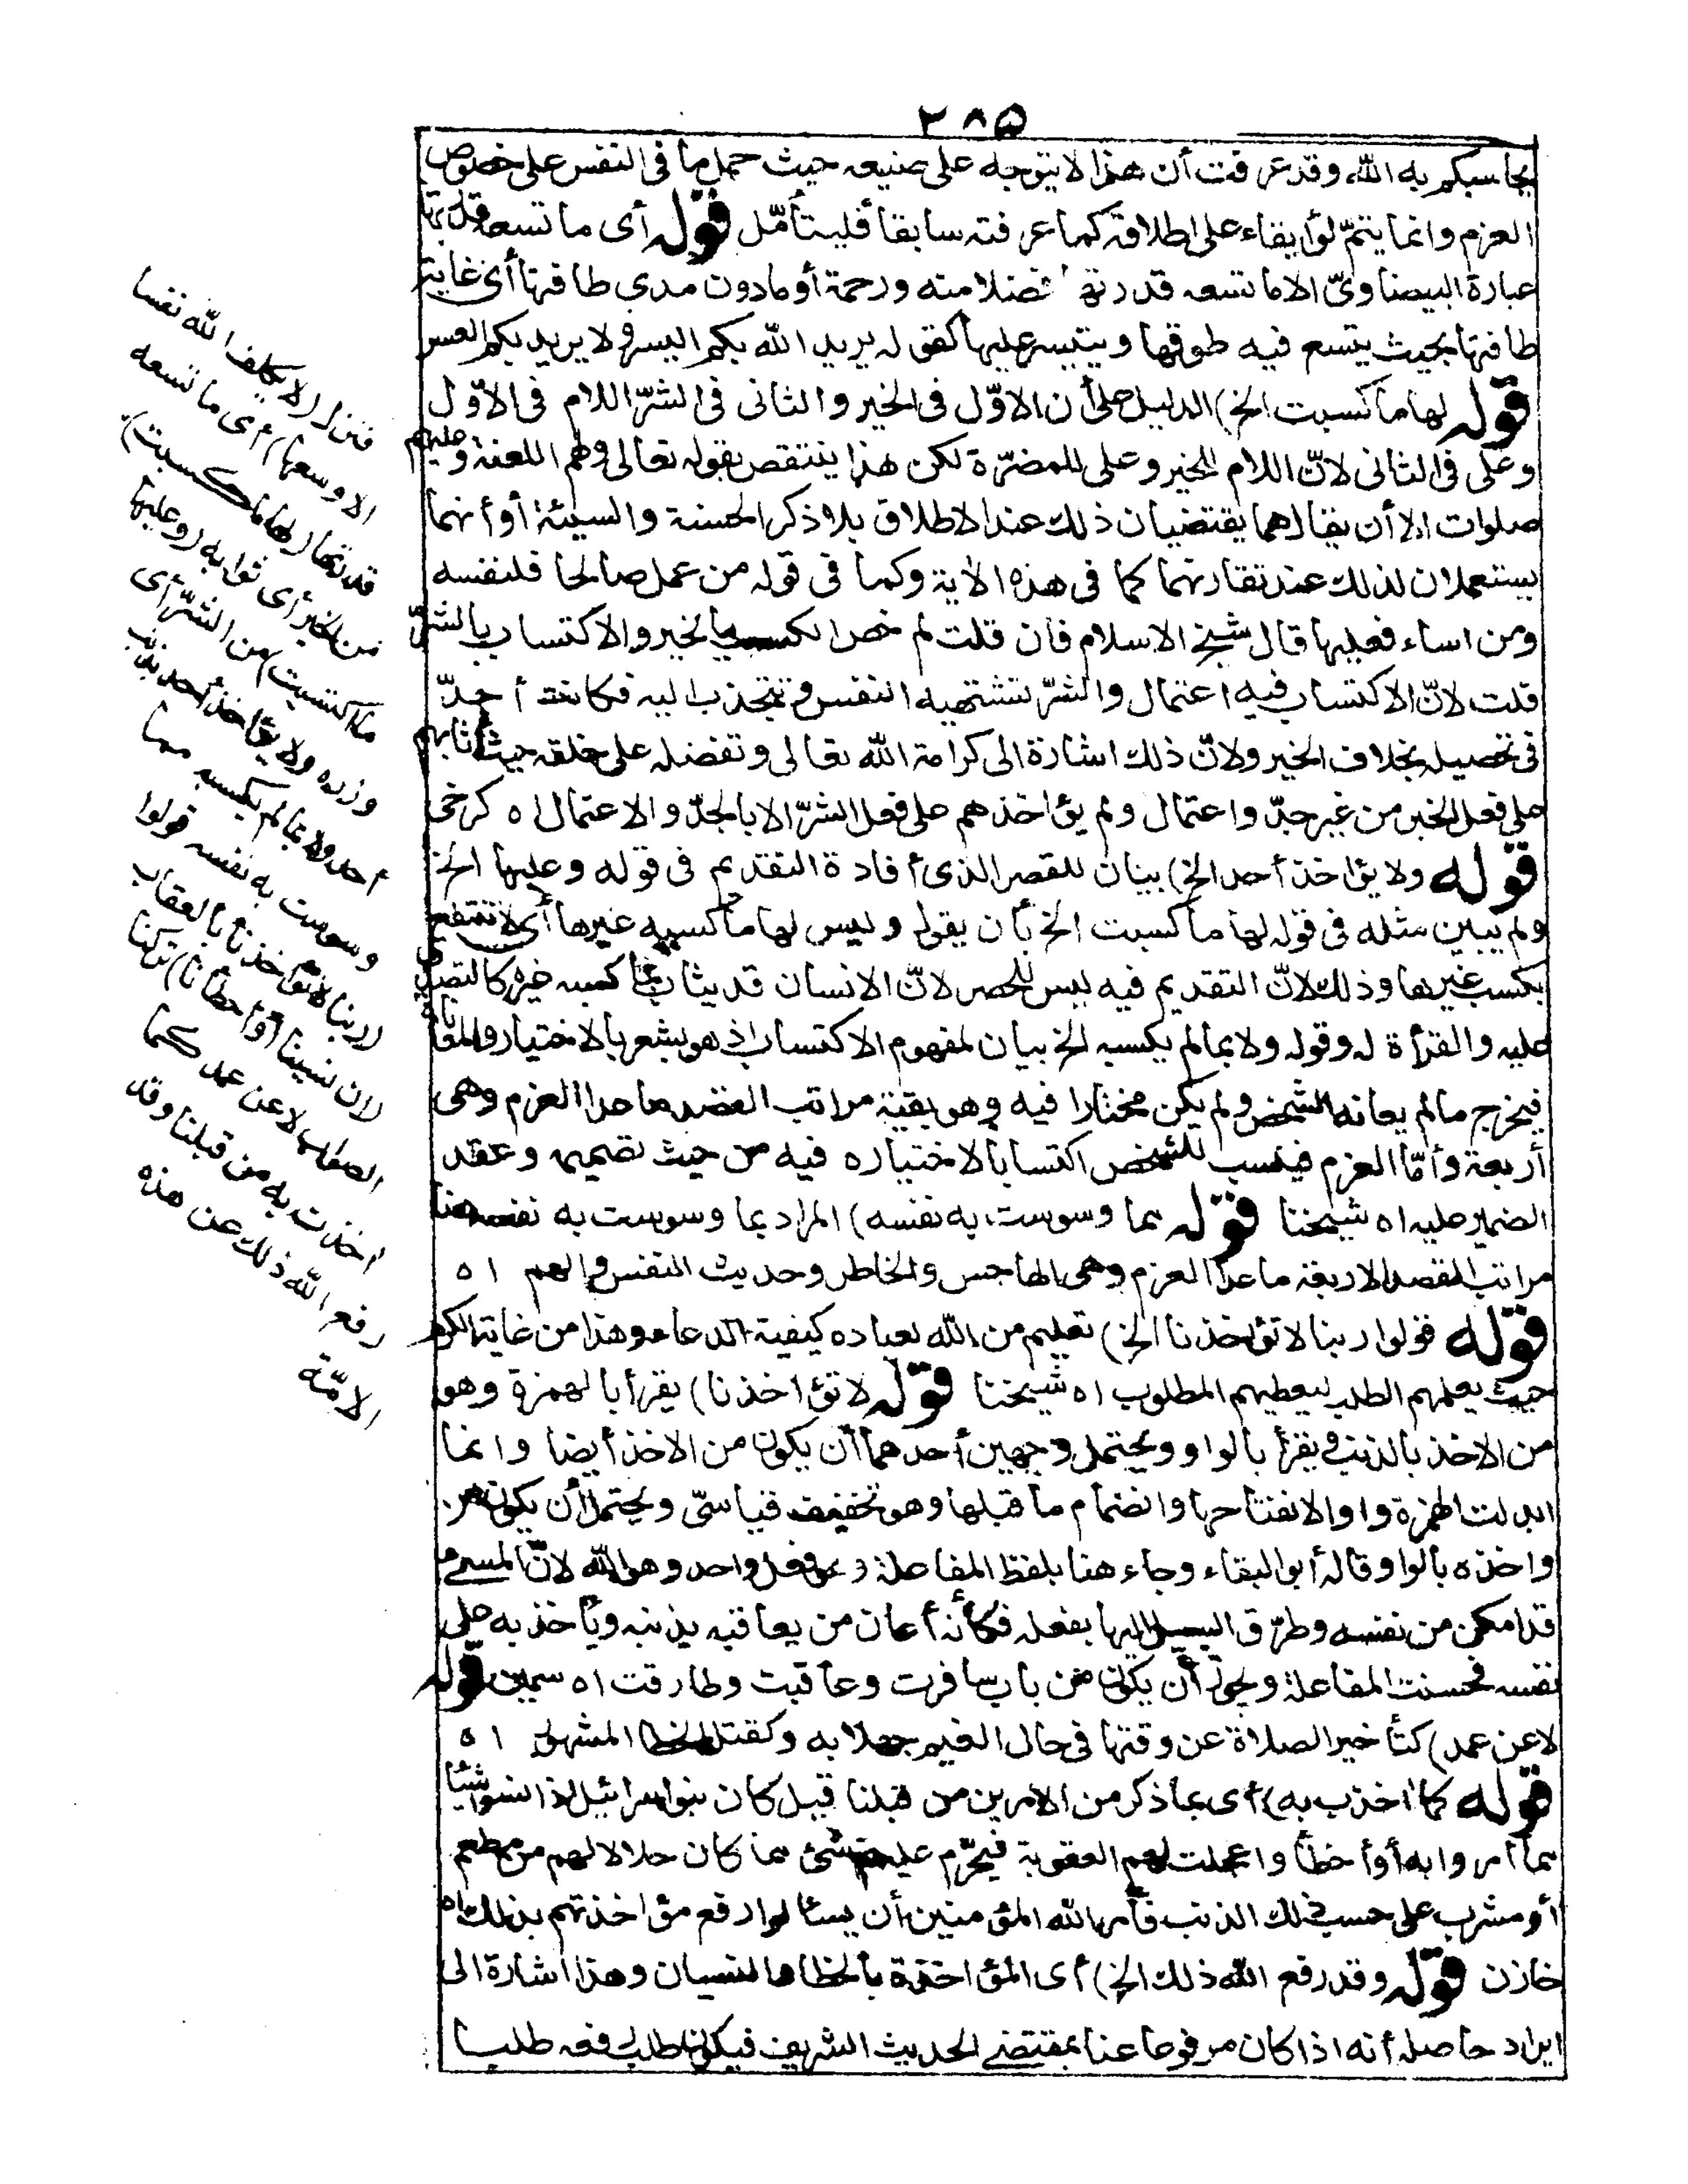 ٢٨٥
يحاسبكم به الله وقد عرفت أن هذا لا يتوجه على صنيعه حيث حمل ما فى النفس على خصوص
العزم وانما يتمّ لو أبقاه على اطلاقه كما عرفته سابقا فليتأمّل قوله أى ما تسعه قدرتها
عبارة البيضاوىّ الا ما تسعه قدرتها فضلا منه ورحمة أو ما دون مدى طاقتها أى غاية
طاقتها بحيث يتسع فيه طوقها ويتيسر عليها كقوله يريد الله بكم اليسر ولا يريد بكم العسر
قوله لها ما كسبت الخ) الدليل على أن الاوّل فى الخير والثانى فى الشرّ اللام فى الاوّل
وعلى فى الثانى لانّ اللام للخير وعلى للمضرّة لكن هذا ينتقض بقوله تعالى ولهم اللعنة وعليهم
صلوات الا أن يقال هما يقتضيان ذلك عند الاطلاق بلا ذكر الحسنة والسيئة أو أنهما
يستعملان لذلك عند تقارنهما كما فى هذه الاية وكما فى قوله من عمل صالحا فلنفسه
ومن اساء فعليها قال شيخ الاسلام فان قلت لم خص الكسب بالخير والاكتساب بالشرّ
قلت لانّ الاكتساب فيه اعتمال والشرّ تشتهيه النفس وتنجذب اليه فكانت أجدّ
فى تحصيله بخلاف الخير ولانّ ذلك اشارة الى كرامة الله تعالى وتفضله على خلقه حيث أثابهم
على فعل الخير من غير جدّ واعتمال ولم يؤاخذهم على فعل الشرّ الا بالجدّ والاعتمال اه كرخى
قوله ولا يؤاخذ أحد الخ) بيان للقصر الذى أفادة التقديم فى قوله وعليها الخ
ولم يبين مثله فى قوله لها ما كسبت الخ بأن يقول وليس لها ما كسبه غيرها أى لا تنتفع
بكسب غيرها وذلك لانّ التقديم فيه ليس للحصر لانّ الانسان قد يثاب بما كسبه غيره كالتصدق
عليه والقرأة له وقوله ولا بما لم يكسبه الخ بيان لمفهوم الاكتساب اذ هو يشعر بالاختيار والمعاناة
فيخرج ما لم يعانه الشخص ولم يكن مختارا فيه وهو بقية مراتب القصد ما عدا العزم وهى
أربعة وأمّا العزم فيكسب للشخص اكتسابا لاختياره فيه من حيث تصميمه وعقد
الضمير عليه اه شيخنا قوله مما وسوست به نفسه) المراد بما وسوست به نفسه هنا
مراتب القصد الاربعة ما عدا العزم وهى الهاجس والخاطر وحديث النفس والهم اه
قوله قولوا ربنا لا تؤاخذنا الخ) تعليم من الله لعباده كيفية الدعاء وهذا من غاية الكرم
حيث يعلمهم الطلب ليعطيهم المطلوب اه شيخنا قوله لا تؤاخذنا) يقرأ بالهمزة وهو
من الاخذ بالذنب ويقرأ بالواو ويحتمل وجهين أحدهما أن يكون من الاخذ أيضا وانما
ابدلت الهمزة واوا لانفتاحها وانضمام ما قبلها وهو تخفيف قياسىّ ويحتمل أن يكون من
واخذه بالواو قاله أبو البقاء وجاء هنا بلفظ المفاعلة وهو فعل واحد وهو الله لانّ المسىء
قد امكن من نفسه وطرّق السبيل اليها بفعله فكأنه أعان من يعاقبه بذنبه ويأخذ به على
نفسه فحسنت المفاعلة ويجوز أن يكون من باب سافرت وعاقبت وطارقت اه سمين قوله
لا عن عمد) كتأخير الصلاة عن وقتها فى حال الغيم جهلا به وكقتل الخطا المشهور اه
قوله كما اخذت به) أى بما ذكر من الامرين من قبلنا قيل كان بنو اسرائيل اذا نسوا شيئا
مما أمروا به أو أخطأوا عجلت لهم العقوبة فيحرّم عليهم شئ مما كان حلالا لهم من مطعم
أو مشرب على حسب ذلك الذنب فأمر الله المؤمنين أن يسئالوا رفع مؤاخذتهم بذلك اه
خازن قوله وقد رفع الله ذلك الخ) أى المؤاخذة بالخطا والنسيان وهذا اشارة الى
ايراد حاصله أنه اذا كان مرفوعا عنا بمقتضى الحديث الشريف فيكون طلب رفعه طلبا
فنزل (لا يكلف الله نفسا
الا وسعها) أى ما تسعه
قدرتها (لها ما كسبت)
من الخير أى ثوابه (وعليها
ما اكتسبت) من الشرّ أى
وزره ولا يؤاخذ أحد بذنب
أحد ولا بما لم يكسبه مما
وسوست به نفسه قولوا
(ربنا لا تؤاخذنا) بالعقاب
(ان نسينا أو أخطأنا) تركنا
الصواب لا عن عمد كما
اخذت به من قبلنا وقد
رفع الله ذلك عن هذه
الامّة